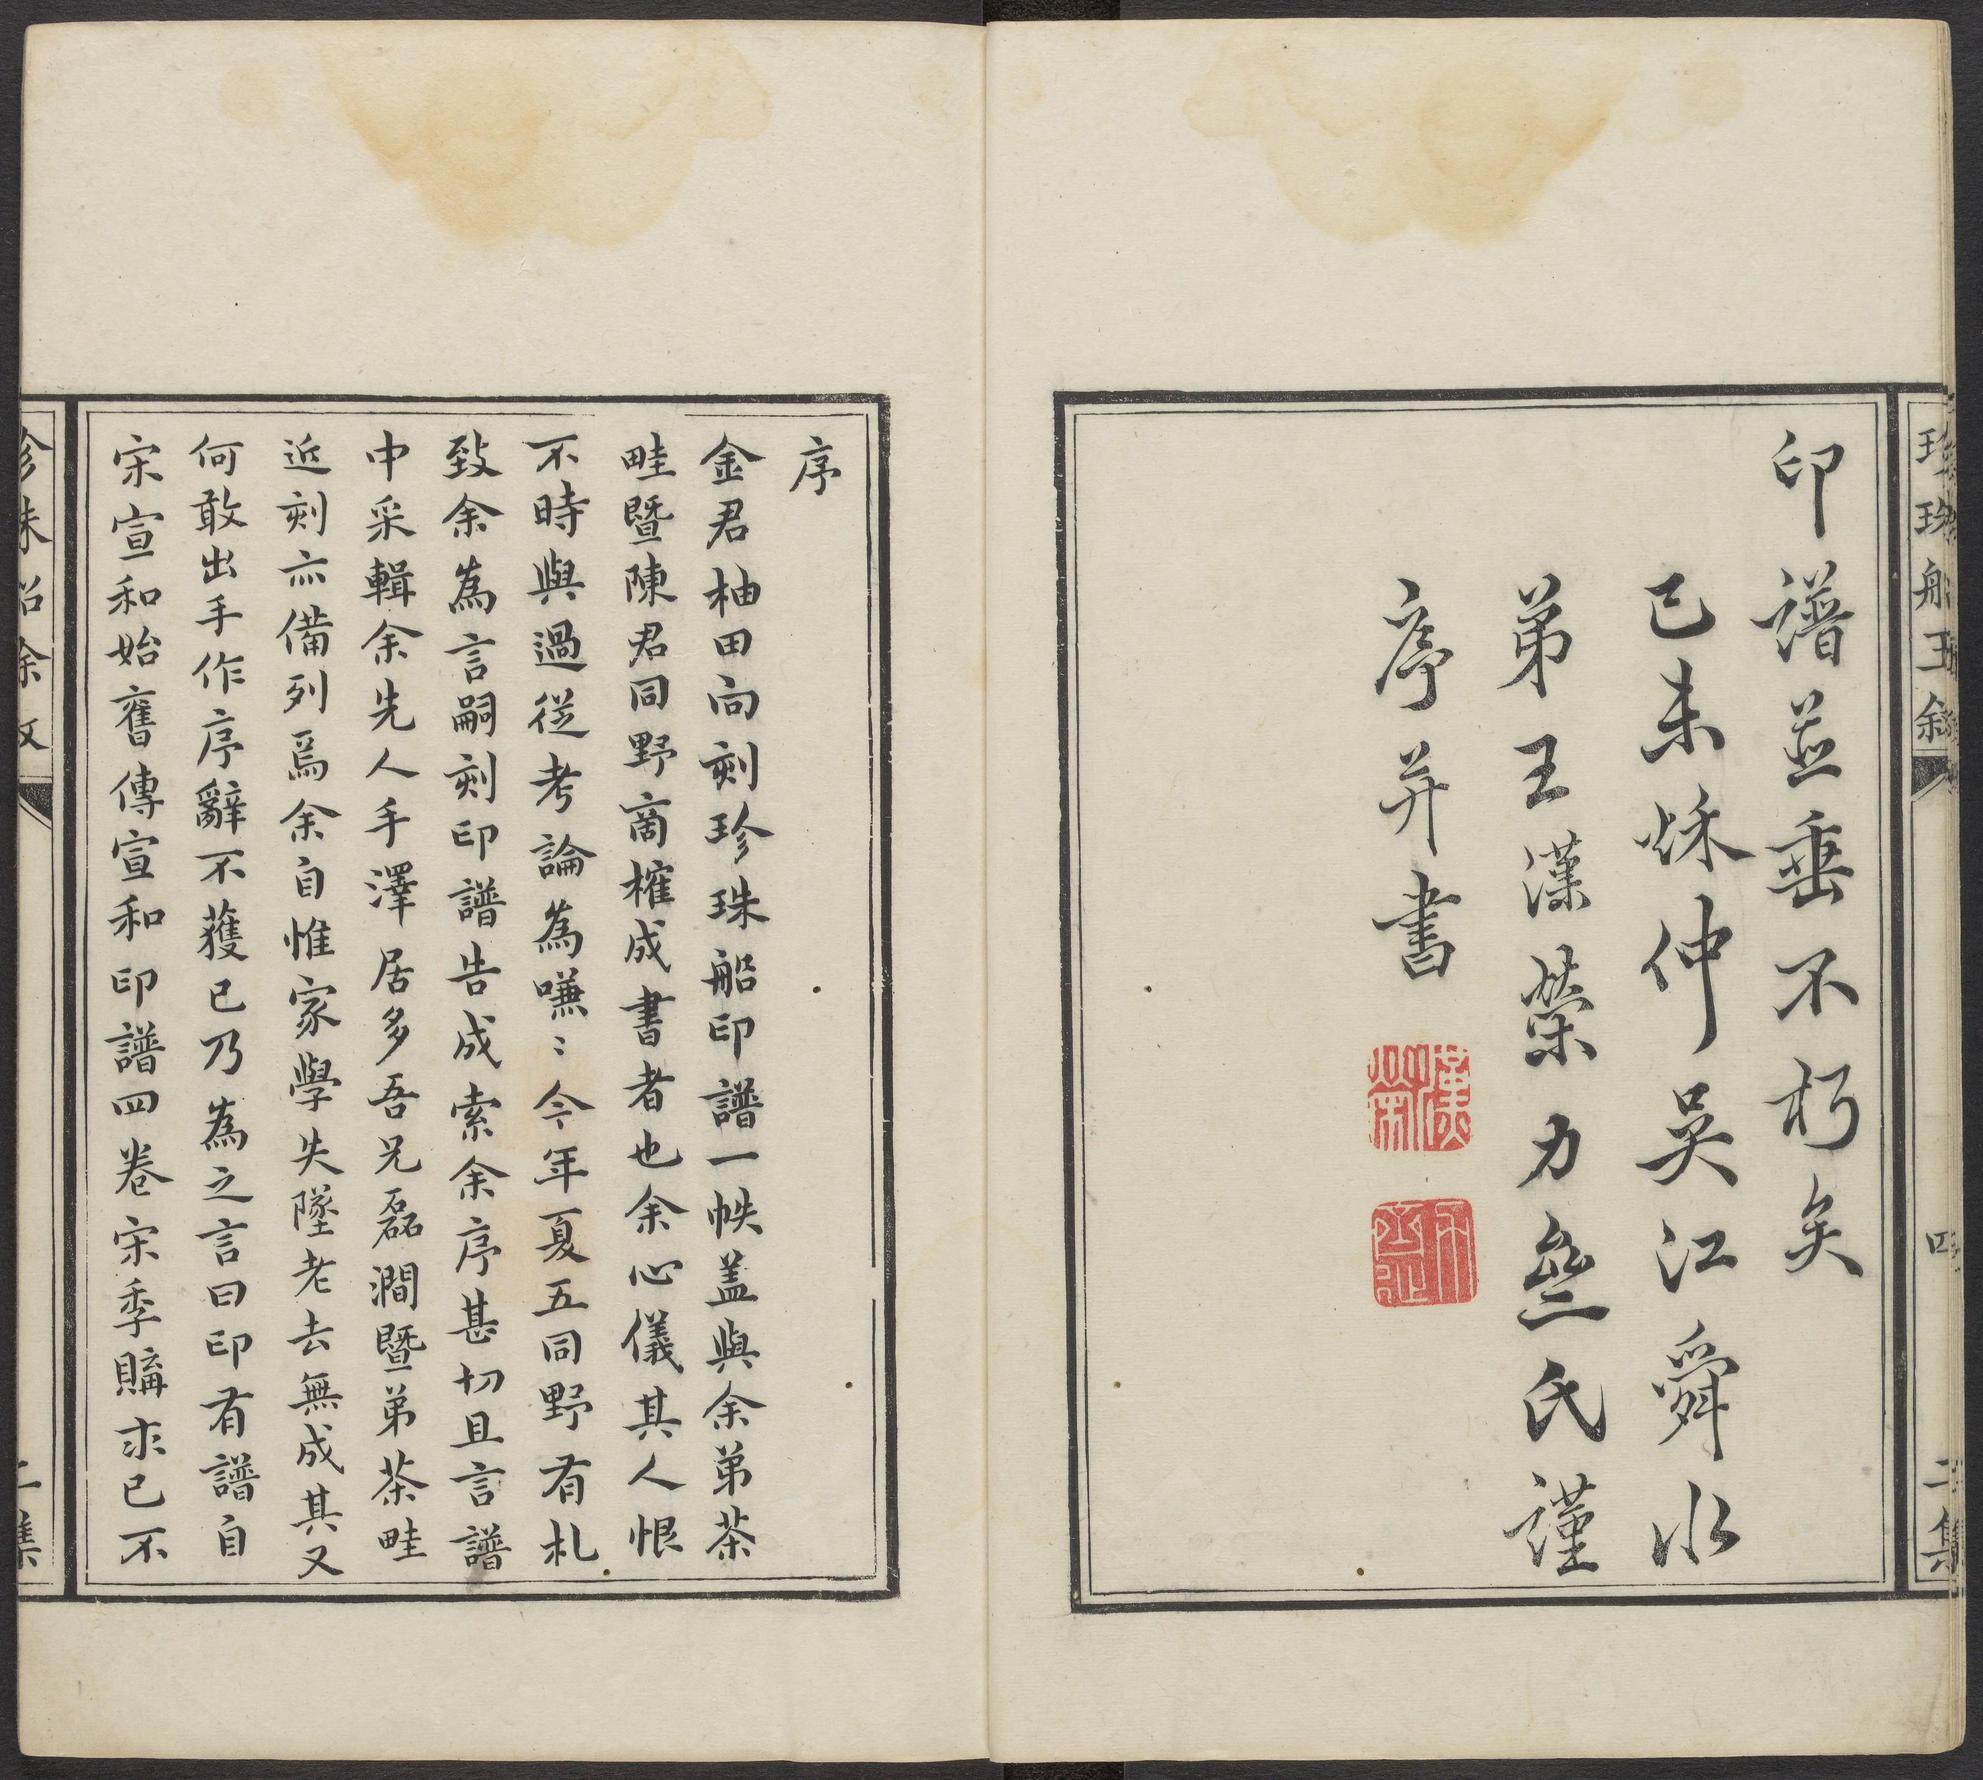 珍珠船王叙
四
二集
印譜並垂不朽矣
己未秌仲吳江舜水
弟王漢榮力無氏謹
序并書
漢榮
序
金君柚田向刻珍珠船印譜一帙盖與余弟茶
畦暨陳君同野商榷成書者也余心儀其人恨
不時與過從考論為嗛〻今年夏五同野有札
致余為言嗣刻印譜告成索余序甚切且言譜
中采輯余先人手澤居多吾兄磊澗暨弟茶畦
近刻亦備列焉余自惟家學失墜老去無成其又
何敢出手作序辭不獲已乃為之言曰印有譜自
宋宣和始舊傳宣和印譜四卷宋季購求已不
珍珠船余叙
二集